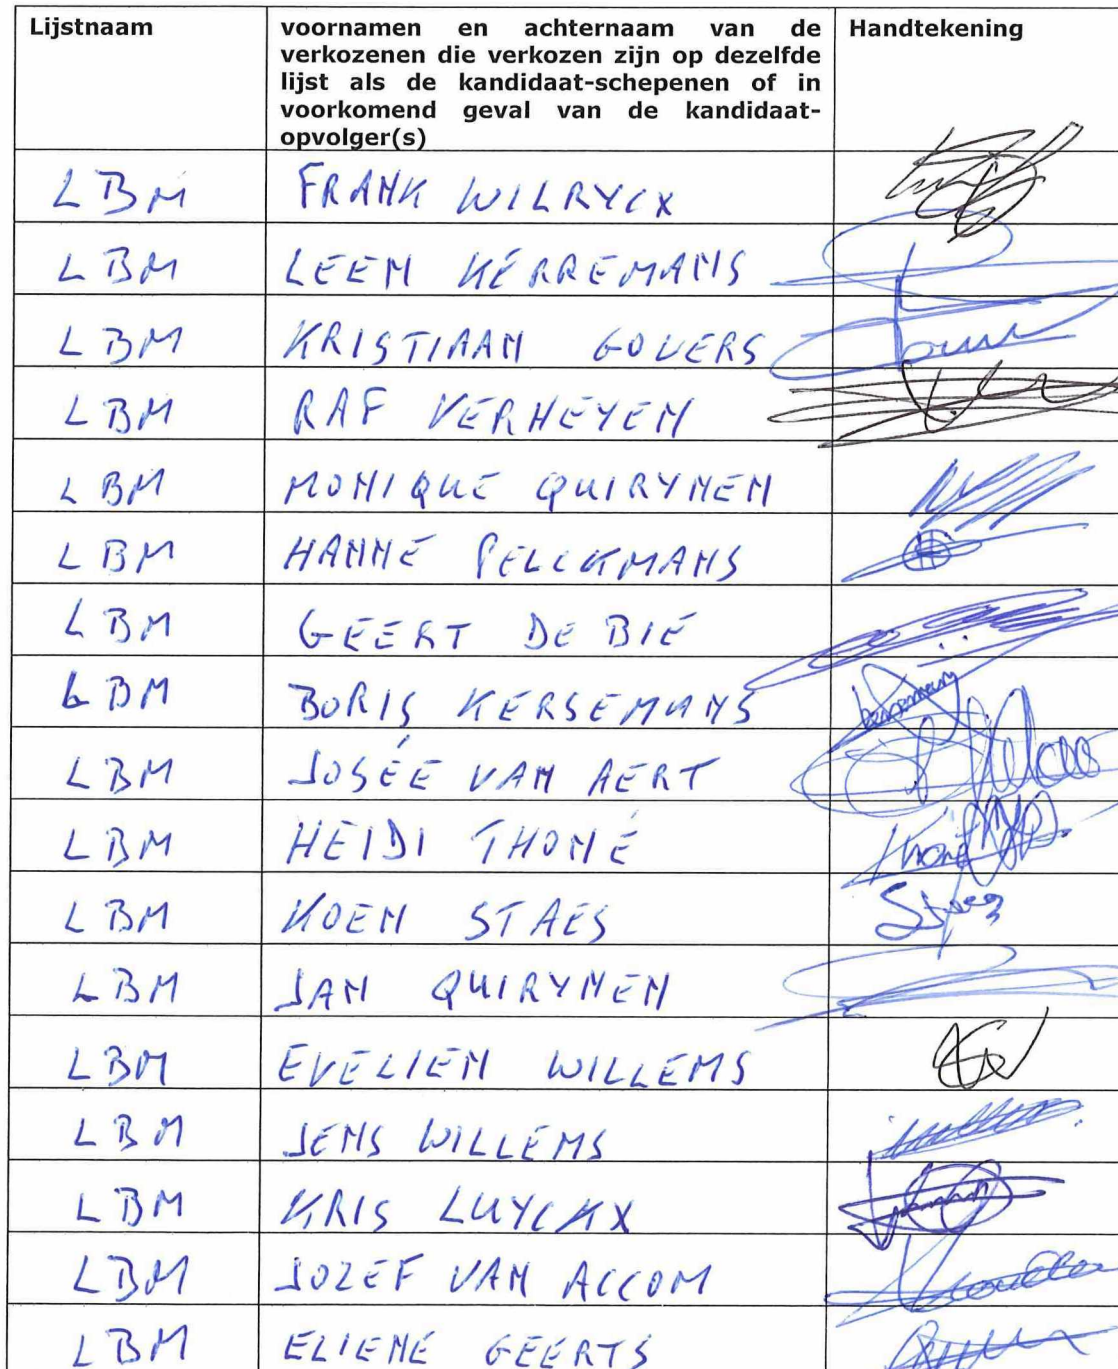 Lijstnaam
voornamen en achternaam van de
verkozenen die verkozen zijn op dezelfde
lijst als de kandidaat-schepenen of in
voorkomend geval van de kandidaat-
opvolger(s)
Handtekening
LBM FRANK WILRYCX
LBM LEEN KERREMANS
LBM KRISTIAAN GOVERS
LBM RAF VERHEYEN
LBM MONIQUE QUIRYNEN
LBM HANNE PELCKMANS
LBM GEERT DE BIE
LBM BORIS KERSEMANS
LBM JOSÉE VAN AERT
LBM HEIDI THOMÉ
LBM KOEN STAES
LBM JAN QUIRYNEN
LBM EVELIEN WILLEMS
LBM JENS WILLEMS
LBM KRIS LUYCKX
LBM JOZEF VAN ACCOM
LBM ELIENE GEERTS